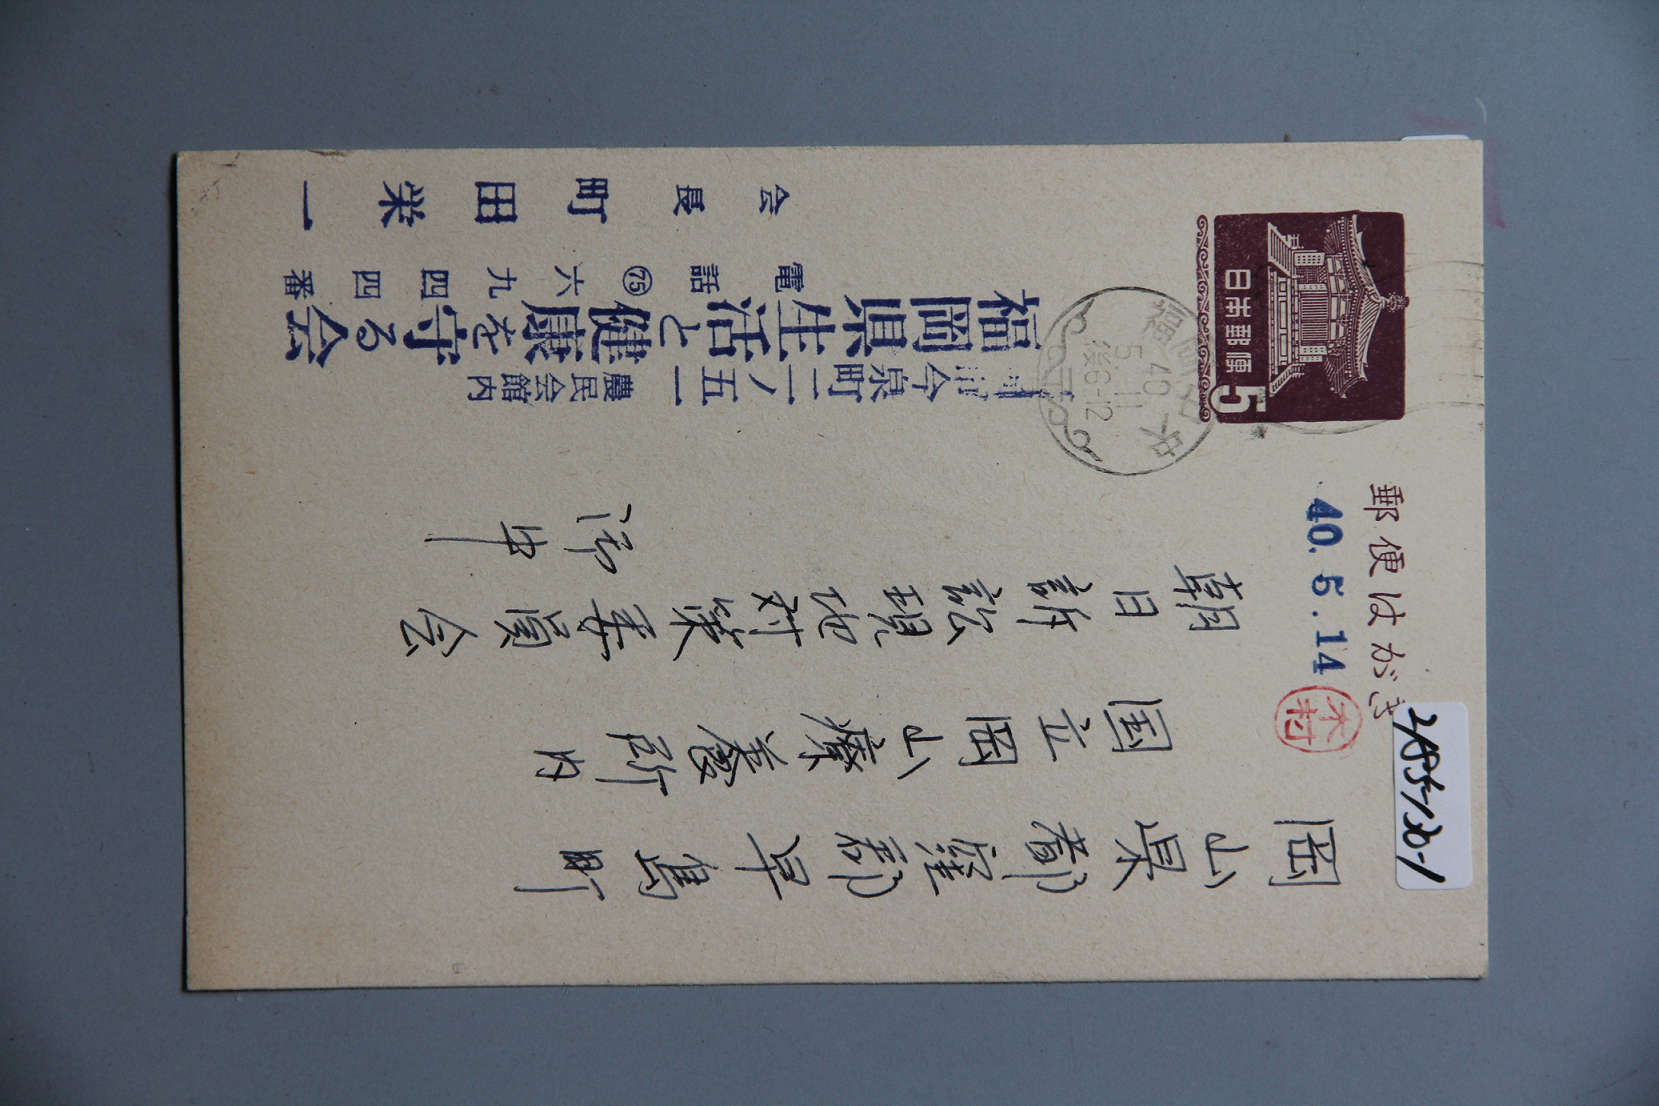 郵便はがき
日本郵便
5
福岡中央
40
5 11
後6-12
40.5.14
木村
岡山県都窪郡早島町
国立岡山療養所内
朝日訴訟現地対策委員会
御中
市今泉町二ノ五一
農民会館内
福岡県生活と健康を守る会
電話㊆六九四四番
会長 町田栄一